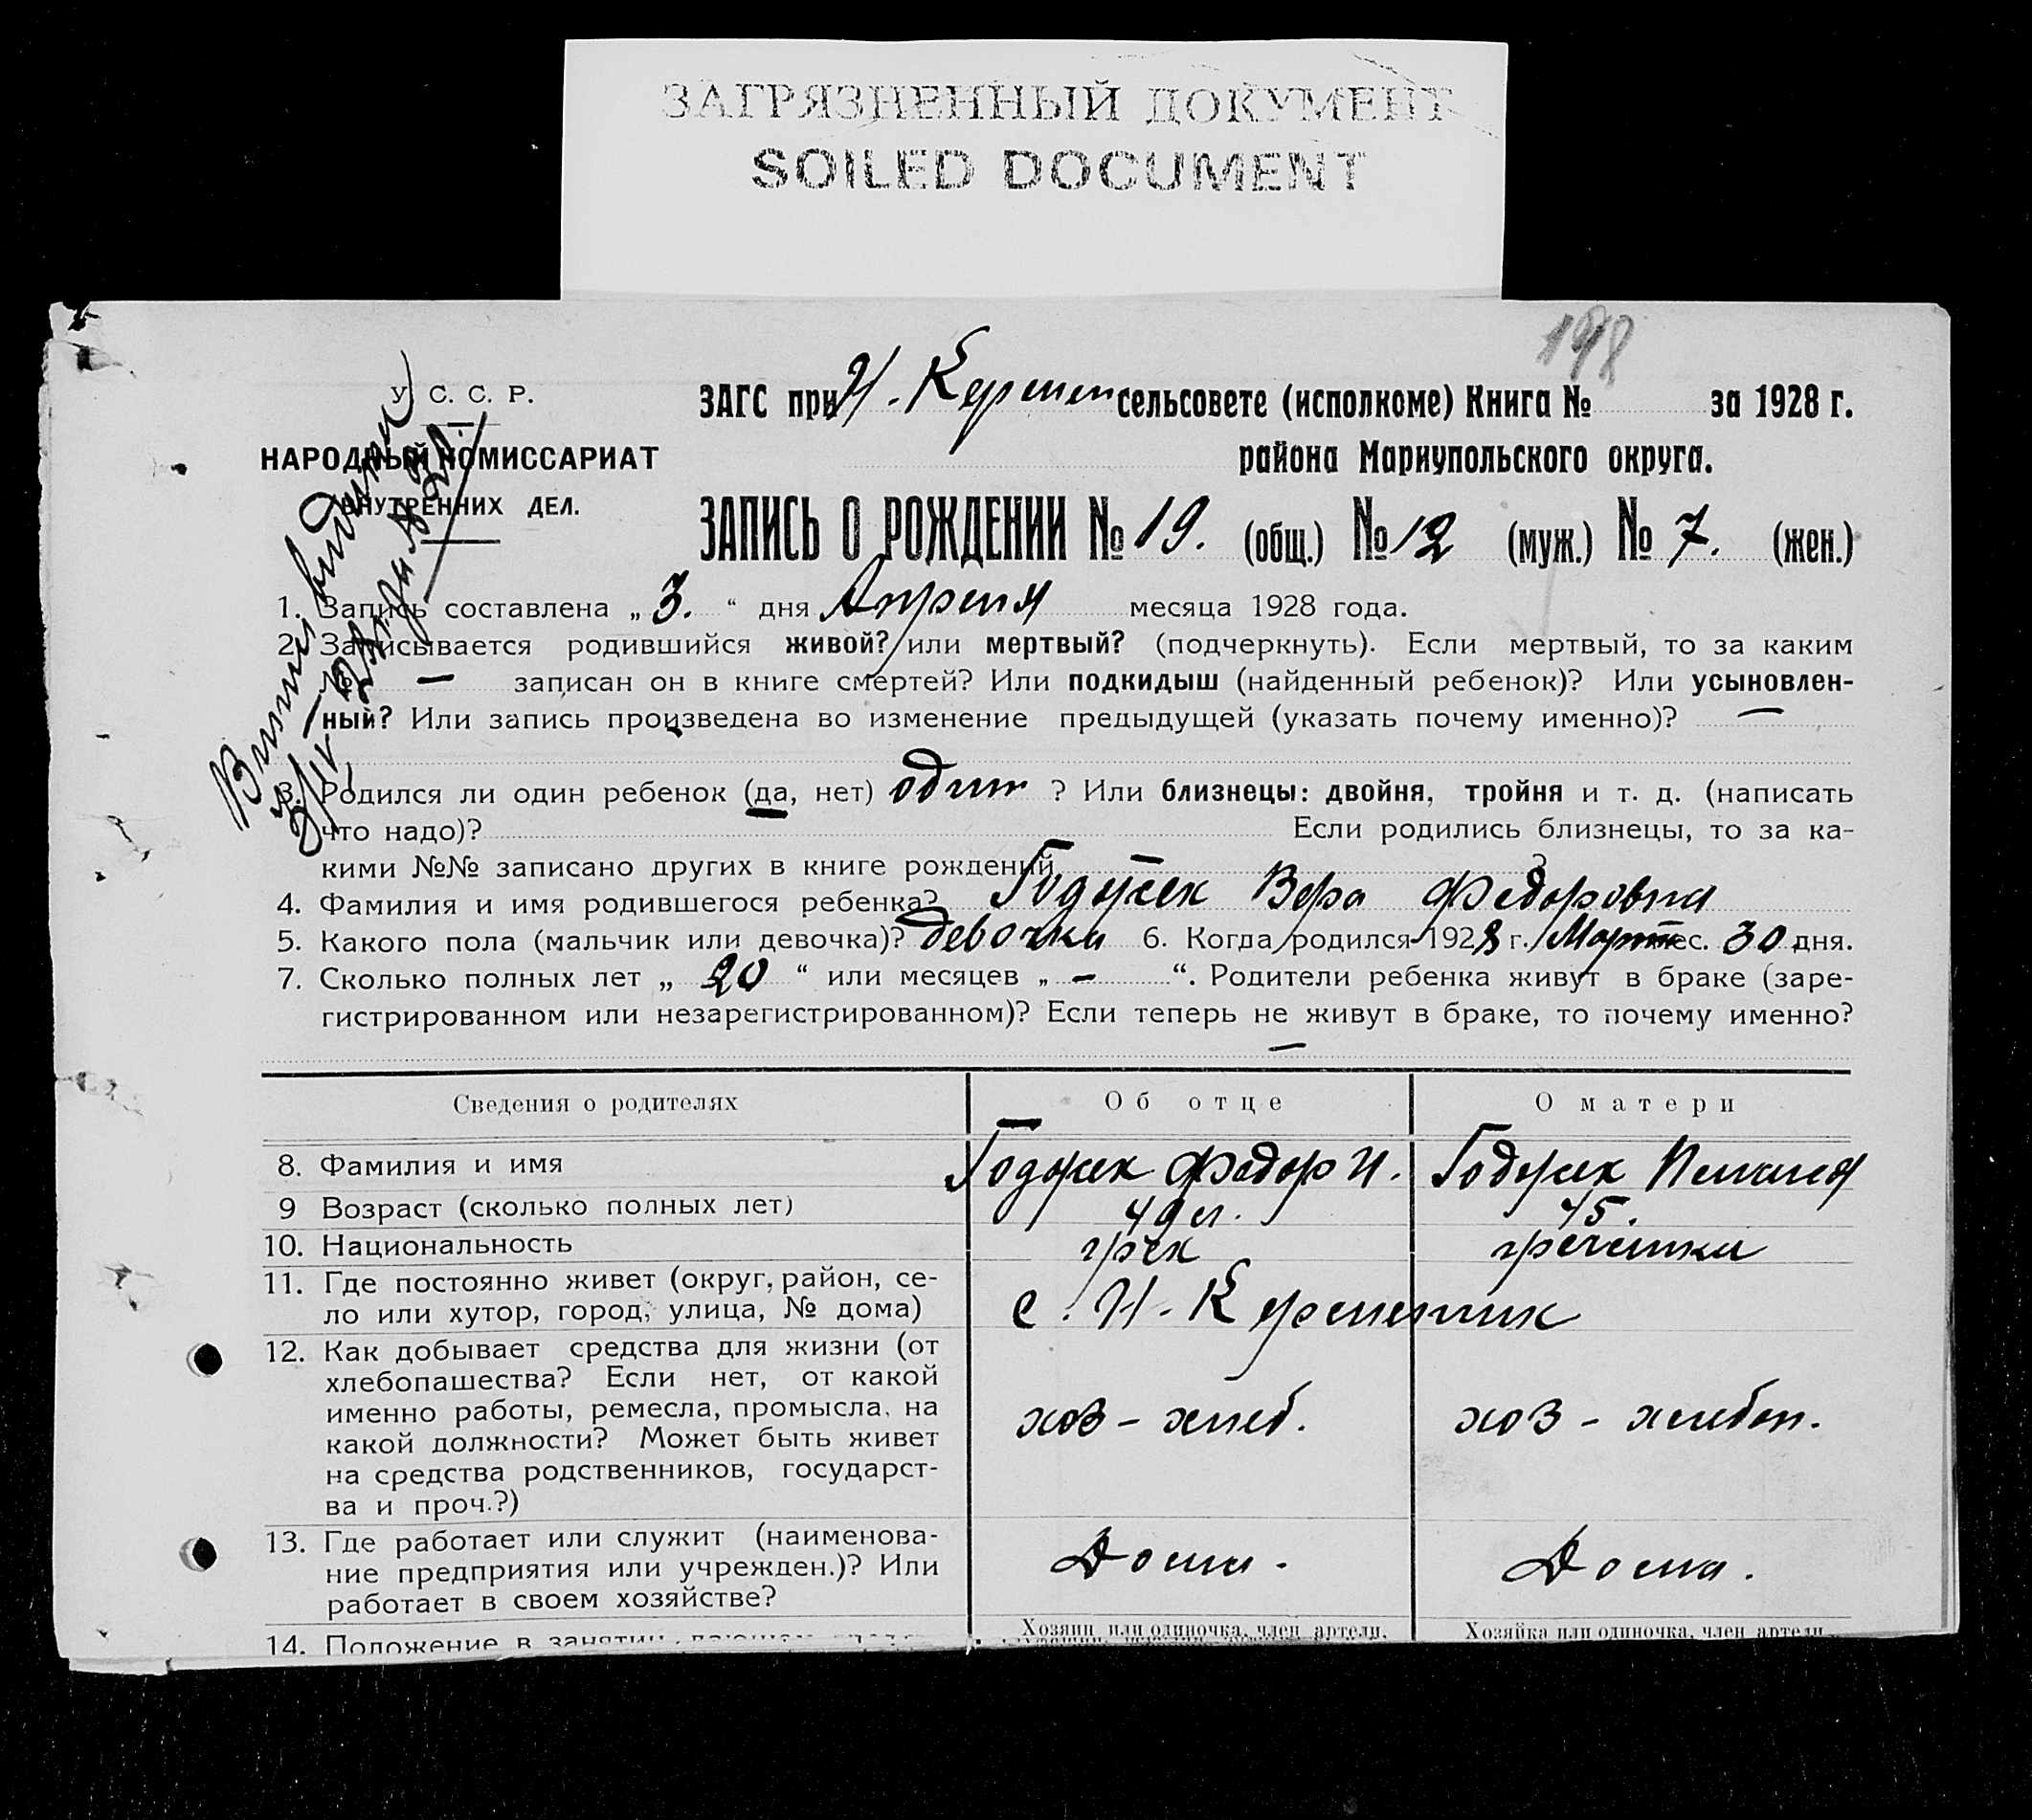 ЗАГРЯЗНЕННЫЙ ДОКУМЕНТ
SOILED DOCUMENT
198
У. С. С. Р.
НАРОДНЫЙ КОМИССАРИАТ
ВНУТРЕННИХ ДЕЛ.
ЗАГС при Н. Кермен сельсовете (исполкоме) Книга № за 1928 г.
района Мариупольского округа.
ЗАПИСЬ О РОЖДЕНИИ № 19. (общ.) № 12 (муж.) № 7. (жен.)
1. Запись составлена „3.“ дня Апреля месяца 1928 года.
2. Записывается родившийся живой? или мертвый? (подчеркнуть). Если мертвый, то за каким
№ — записан он в книге смертей? Или подкидыш (найденный ребенок)? Или усыновлен-
ный? Или запись произведена во изменение предыдущей (указать почему именно)? —
3. Родился ли один ребенок (да, нет) один ? Или близнецы: двойня, тройня и т. д. (написать
что надо)? Если родились близнецы, то за ка-
кими №№ записано других в книге рождений — ?
4. Фамилия и имя родившегося ребенка? Вера Федоровна
5. Какого пола (мальчик или девочка)? девочка 6. Когда родился 1928 г. Март мес. 30 дня.
7. Сколько полных лет „ 20 “ или месяцев „ — “. Родители ребенка живут в браке (заре-
гистрированном или незарегистрированном)? Если теперь не живут в браке, то почему именно?
—
Сведения о родителях Об отце О матери
8. Фамилия и имя Федор И.
9 Возраст (сколько полных лет) 49 л. 45.
10. Национальность грек гречанка
11. Где постоянно живет (округ, район, се-
ло или хутор, город, улица, № дома) с. Н-Керменчик
12. Как добывает средства для жизни (от
хлебопашества? Если нет, от какой
именно работы, ремесла, промысла, на
какой должности? Может быть живет
на средства родственников, государст-
ва и проч.?)
хоз-хлеб. хоз-хлебоп.
13. Где работает или служит (наименова-
ние предприятия или учрежден.)? Или
работает в своем хозяйстве?
Дома. Дома.
Хозяин или одиночка, член артели, Хозяйка или одиночка, член артели
14. Положение в занятии, дающем